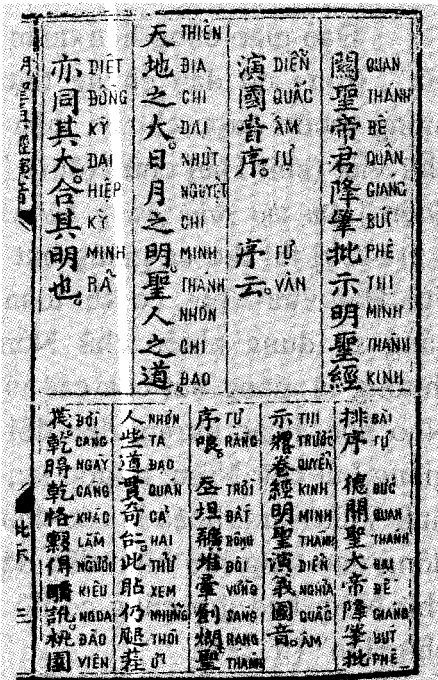 關聖帝君降筆批示明聖經
QUAN THÁNH ĐẾ QUÂN GIÁNG BÚT PHÊ THỊ MINH THÁNH KINH
演國音序。 序云。
DIỄN QUẤC ÂM TỰ TỰ VÂN
天地之大。日月之明。聖人之道。
THIÊN ĐỊA CHI ĐẠI NHỰT NGUYỆT CHI MINH THÁNH NHƠN CHI ĐẠO
亦同其大。合其明也。
DIẾT ĐỒNG KỲ ĐẠI HIỆP KỲ MINH RÃ
排序 德關聖大帝降筆批
BÀI TỰ ĐỨC QUAN THÁNH ĐẠI ĐẾ GIANG BÚT PHÊ
示卷經明聖演義國音。
THỊ TRƯỚC QUYỂN KINH MINH THÁNH DIỄN NGHĨA QUẤC ÂM
序哴。坦堆暈創聖
TỰ RẰNG TRỜI ĐẤT RỘNG BÔI VỪNG SANG RANG THÁNH
人些道貫奇𠄩。此貼仍腿莊
NHƠN TA ĐẠO QUÁN CẢ HAI THỬ XEM NHỮNG THÓI
乾乾訛桃園
BỞI CANG NGÀY CANG KHÁC LẮM NGƯỜI KIÊU NGOA ĐÀO VIÊN
批示
三